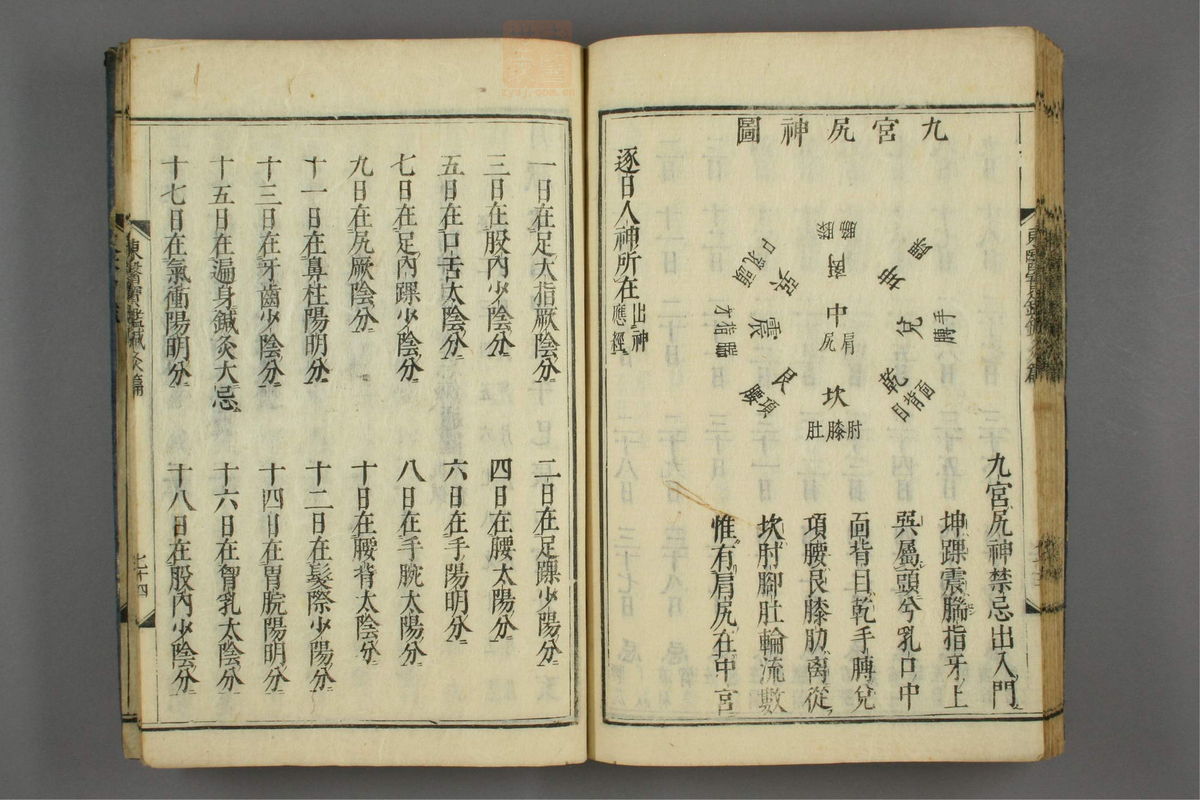 九宮尻神圖
坤踝
南
膝肋
巽
口乳頭
中
肩尻
兌
手膊
震
牙指腨
乾
面背目
坎
肘膝肚
艮
腰項
九宮尻神禁忌出入門
坤踝震腨指牙上
巽屬頭兮乳口中
面背目乾手膊兌
項腰艮膝肋离從
坎肘腳肚輪流數
惟有肩尻在中宮
逐日人神所在出神應經
一日在足大指厥陰分 二日在足踝少陽分
三日在股內少陰分 四日在腰太陽分
五日在口舌太陰分 六日在手陽明分
七日在足內踝少陰分 八日在手腕太陽分
九日在尻厥陰分 十日在腰背太陰分
十一日在鼻柱陽明分 十二日在髮際少陽分
十三日在牙齒少陰分 十四日在胃脘陽明分
十五日在遍身鍼灸大忌 十六日在胷乳太陰分
十七日在氣衝陽明分 十八日在股內少陰分
東醫寶鑑鍼灸篇
七十四